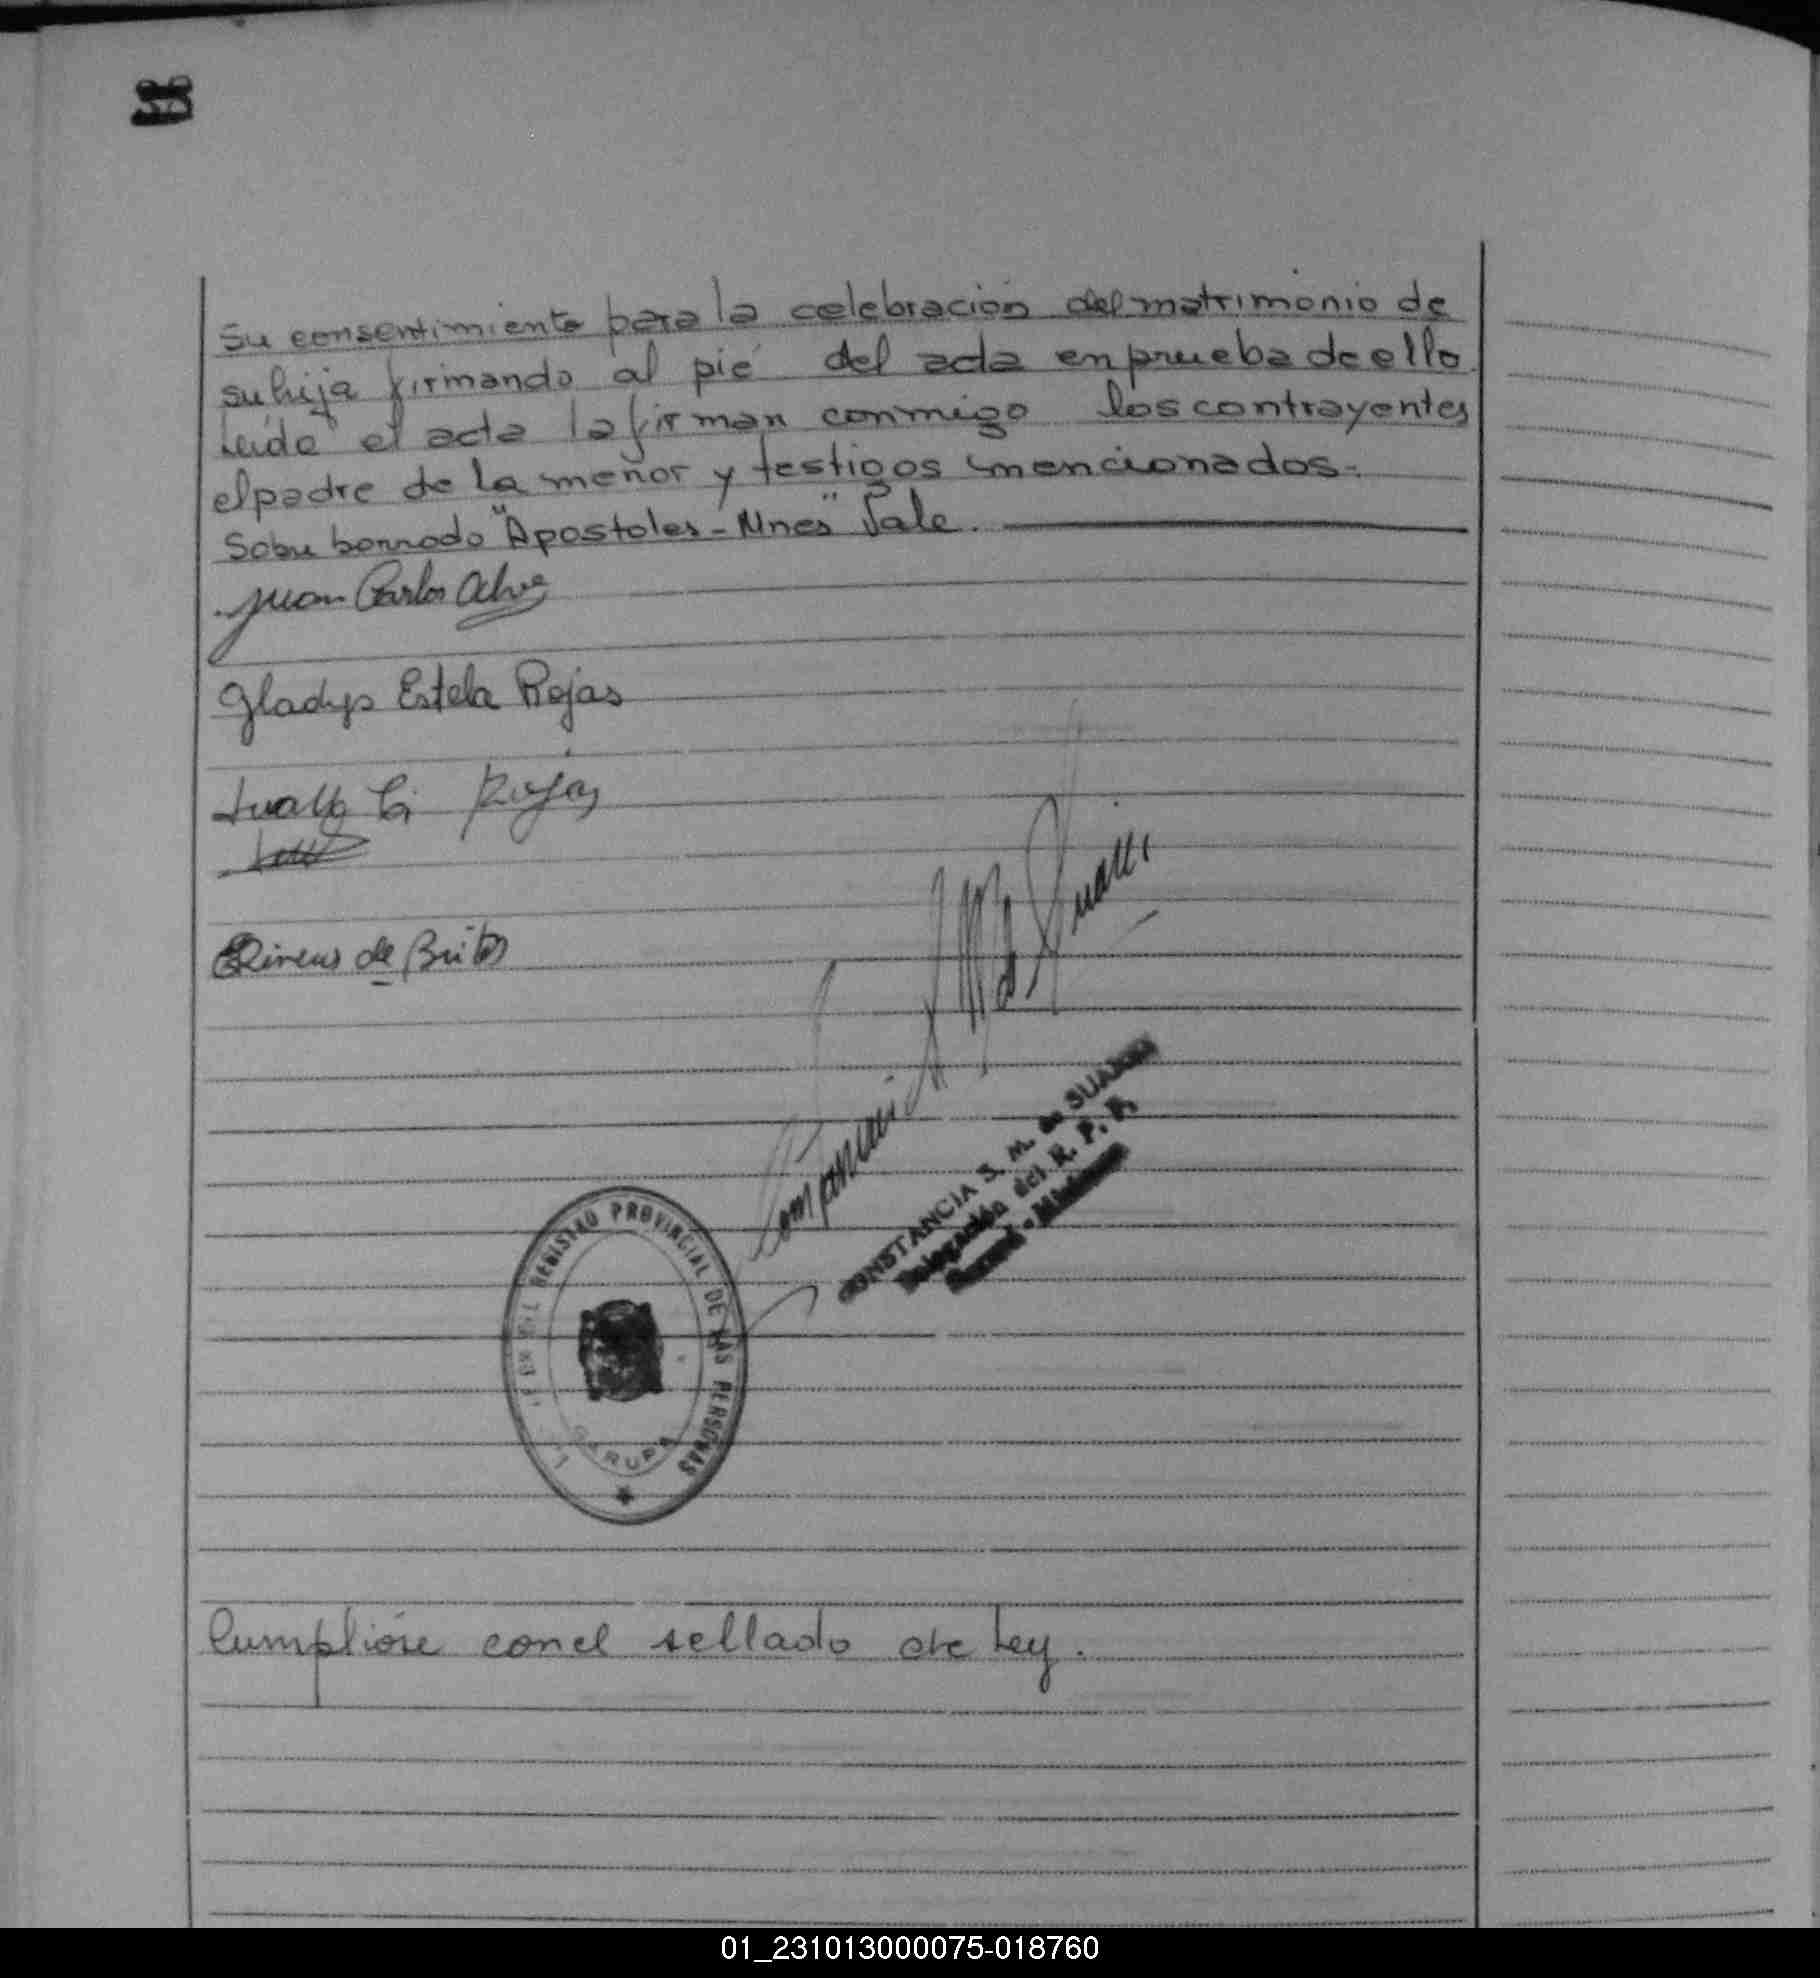 su consentimiento para la celebración del matrimonio de
su hija firmando al pié del acta en prueba de ello
Leída el acta la firman conmigo los contrayentes
el padre de la menor y testigos mencionados.
Sobre borrado "Apostoles - Mnes" Vale.
Juan Carlos
Gladys Estela Rojas
Rojas
de Britos
CONSTANCIA S. M. de SUAREZ
Delegación del R. P. P.
REGISTRO PROVINCIAL DE LAS PERSONAS
GARUPA
Cumplióse con el sellado de Ley.
01_231013000075-018760